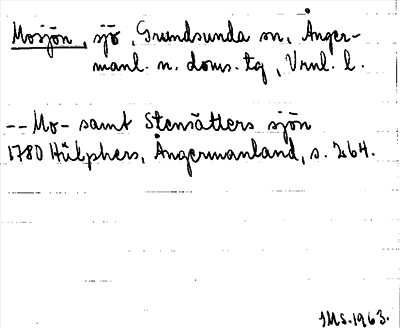 Mosjön, sjö, Grundsunda sn, Ånger-
manl. n. doms. tg, Vrnl. l.
-- Mo- samt Stensätters sjön
1780 Hülphers, Ångermanland, s. 264.
IMS. 1963.